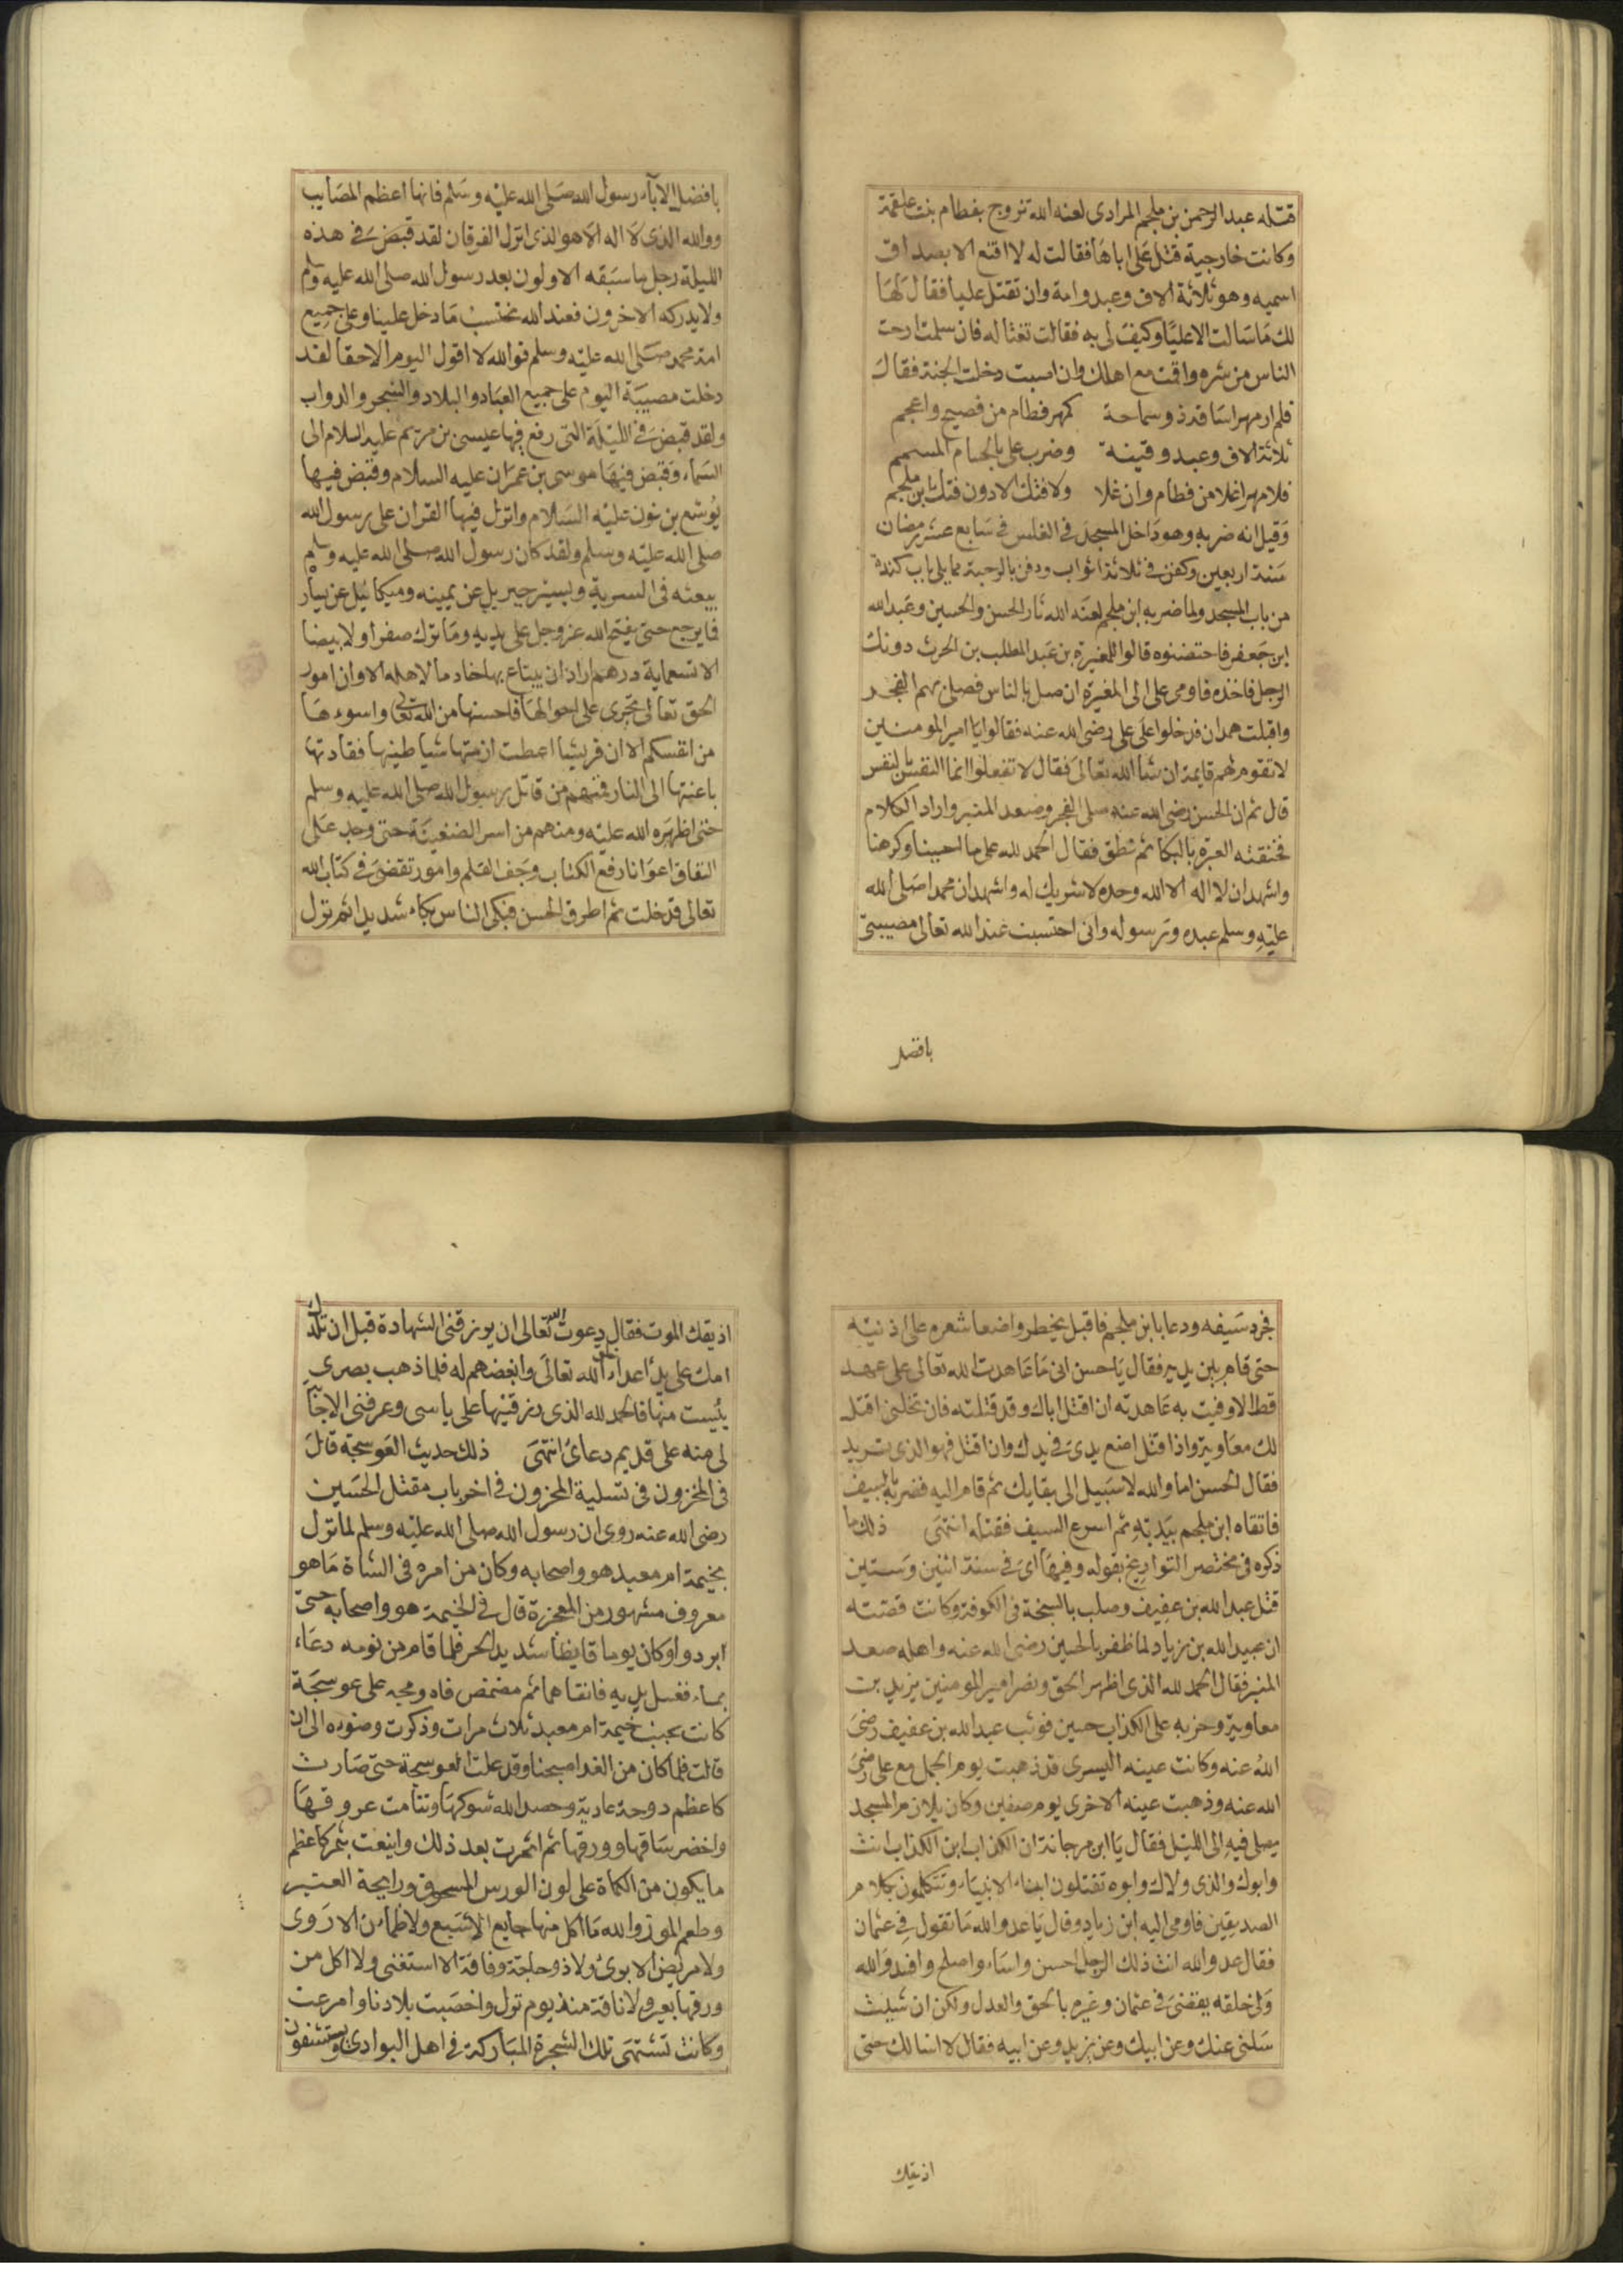 قتله عبد الرحمن بن ملجم المرادى لعنه الله تزوج بفطام بنت علقمة
وكانت خارجية قتل على اباها فقالت له لا اقنع الا بصداق
اسميه وهو ثلاثة الاف وعبد وامة وان تقتل عليا فقال لها
لك ما سالت الا عليا وكيف لى به فقالت تغتاله فان سلمت ارحت
الناس من شره واقمت مع اهلك وان اصبت دخلت الجنة فقال
فلم ار مهرا ساقه ذو سماحة كمهر فطام من فصيح واعجم
ثلاثة الاف وعبد وقينة وضرب على بالحسام المسمم
فلا مهر اغلا من فطام وان غلا ولا فتك الا دون فتك ابن ملجم
وقيل انه ضربه وهو داخل المسجد فى الغلس فى سابع عشر رمضان
سنة اربعين وكفن فى ثلاثة اثواب ودفن بالرحبة مما يلى باب كندة
من باب المسجد ولما ضربه ابن ملجم لعنه الله ثار الحسن والحسين وعبد الله
ابن جعفر فاحتضنوه قالوا للمغيرة بن عبد المطلب بن الحرث دونك
الرجل فاخذه فاومى على الى المغيرة ان صل بالناس فصلى بهم الفجر
واقبلت همدان فدخلوا على على رضى الله عنه فقالوا يا امير المومنين
لا تقوم لهم قايمة ان شا الله تعالى فقال لا تفعلوا انما النفس بالنفس
قال ثم ان الحسن رضى الله عنه صلى الفجر وصعد المنبر واراد الكلام
فخنقته العبرة بالبكا ثم نطق فقال الحمد لله على ما احببنا وكرهنا
واشهد ان لا اله الا الله وحده لا شريك له واشهد ان محمدا صلى الله
عليه وسلم عبده ورسوله وانى احتسبت عند الله تعالى مصيبتى
بافضل
بافضل الاباء رسول الله صلى الله عليه وسلم فانها اعظم المصايب
ووالله الذى لا اله الا هو الذى انزل الفرقان لقد قبض فى هذه
الليلة رجل ما سبقه الاولون بعد رسول الله صلى الله عليه وسلم
ولا يدركه الاخرون فعند الله نحتسب ما دخل علينا وعلى جميع
امة محمد صلى الله عليه وسلم فوالله لا اقول اليوم الا حقا لقد
دخلت مصيبة اليوم على جميع العباد والبلاد والشجر والدواب
ولقد قبض فى الليلة التى رفع فيها عيسى بن مريم عليه السلام الى
السماء وقبض فيها موسى بن عمران عليه السلام وقبض فيها
يوشع بن نون عليه السلام وانزل فيها القران على رسول الله
صلى الله عليه وسلم ولقد كان رسول الله صلى الله عليه وسلم
يبعثه فى السرية ويسير جبريل عن يمينه وميكائيل عن يساره
فما يرجع حتى يفتح الله عز وجل على يديه وما ترك صفرا ولا بيضا
الا تسعماية درهم اراد ان يبتاع بها خادما لاهله الا وان امور
الحق تعالى تجرى على احوالها فاحسنها من الله تعالى واسوءها
من انفسكم الا ان قريشا اعطت ازمتها شياطينها فقادتها
باعنتها الى النار فمنهم من قاتل رسول الله صلى الله عليه وسلم
حتى اظهره الله عليه ومنهم من اسر الضغينة حتى وجد على
النفاق اعوانا رفع الكتاب وجف القلم وامور تقضى فى كتاب الله
تعالى قد خلت ثم اطرق الحسن فبكى الناس بكاء شديدا ثم نزل
فجرد سيفه ودعا بابن ملجم فاقبل يخطر واضعا شعره على اذنيه
حتى قام بين يديه فقال يا حسن انى ما عاهدت الله تعالى على عهد
قط الا وفيت به عاهدته ان اقتل اباك وقد قتلته فان تخلنى اقتل
لك معاوية واذا قتل اضع يدى فى يدك وان اقتل فهو الذى تريد
فقال الحسن اما والله لا سبيل الى بقايك ثم قام اليه فضربه بالسيف
فاتقاه ابن ملجم بيديه ثم اسرع السيف فقتله انتهى ذلك ما
ذكره فى مختصر التواريخ بقوله وفيها اى فى سنة اثنين وستين
قتل عبد الله بن عفيف وصلب بالسبخة فى الكوفة وكانت قصته
ان عبيد الله بن زياد لما ظفر بالحسين رضى الله عنه واهله صعد
المنبر فقال الحمد لله الذى اظهر الحق ونصر امير المومنين يزيد بن
معاوية وحزبه على الكذاب حسين فوثب عبد الله بن عفيف رضى
الله عنه وكانت عينه اليسرى قد ذهبت يوم الجمل مع على رضى
الله عنه وذهبت عينه الاخرى يوم صفين وكان يلازم المسجد
يصلى فيه الى الليل فقال يا ابن مرجانة ان الكذاب ابن الكذاب انت
وابوك والذى ولاك وابوه تقتلون ابناء الانبياء وتتكلمون بكلام
الصديقين فاومى اليه ابن زياد وقال يا عدو الله ما تقول فى عثمان
فقال عدو الله انت ذلك الرجل احسن واساء واصلح وافسد والله
ولى خلقه يقضى فى عثمان وغيره بالحق والعدل ولكن ان شيت
سلنى عنك وعن ابيك وعن يزيد وعن ابيه فقال لا اسالك حتى
اذيقك
اذيقك الموت فقال دعوت الله تعالى ان يرزقنى الشهادة قبل ان تلدك
امك على يد اعداء الله تعالى وابغضهم له فلما ذهب بصرى
يئست منها فالحمد لله الذى رزقنيها على ياسى وعرفنى الاجابة
لى منه على قديم دعائى انتهى ذلك حديث العوسجة قال
فى المخزون فى تسلية المحزون فى اخر باب مقتل الحسين
رضى الله عنه روى ان رسول الله صلى الله عليه وسلم لما نزل
بخيمة ام معبد هو واصحابه وكان من امره فى الشاة ما هو
معروف مشهور من المعجزة قال فى الخيمة هو واصحابه حتى
ابردوا وكان يوما قايظا شديد الحر فلما قام من نومه دعاء
بماء فغسل يديه فانقاهما ثم مضمض فاه ومجه على عوسجة
كانت بجنب خيمة ام معبد ثلاث مرات وذكرت وضوءه الى ان
قالت فلما كان من الغد اصبحنا وقد علت العوسجة حتى صارت
كاعظم دوحة عادية وحصد الله شوكها وتنامت عروقها
واخضر ساقها وورقها ثم اثمرت بعد ذلك واينعت بثمر كاعظم
ما يكون من الكماة على لون الورس المسحوق ورايحة العنبر
وطعم الموز والله ما اكل منها جايع الا شبع ولا ظمان الا روى
ولا مريض الا برئ ولا ذو حاجة وفاقة الا استغنى ولا اكل من
ورقها بعير ولا ناقة منذ يوم نزل واخصبت بلادنا وامرعت
وكانت تشتهى تلك الشجرة المباركة فى اهل البوادى ويستشفون